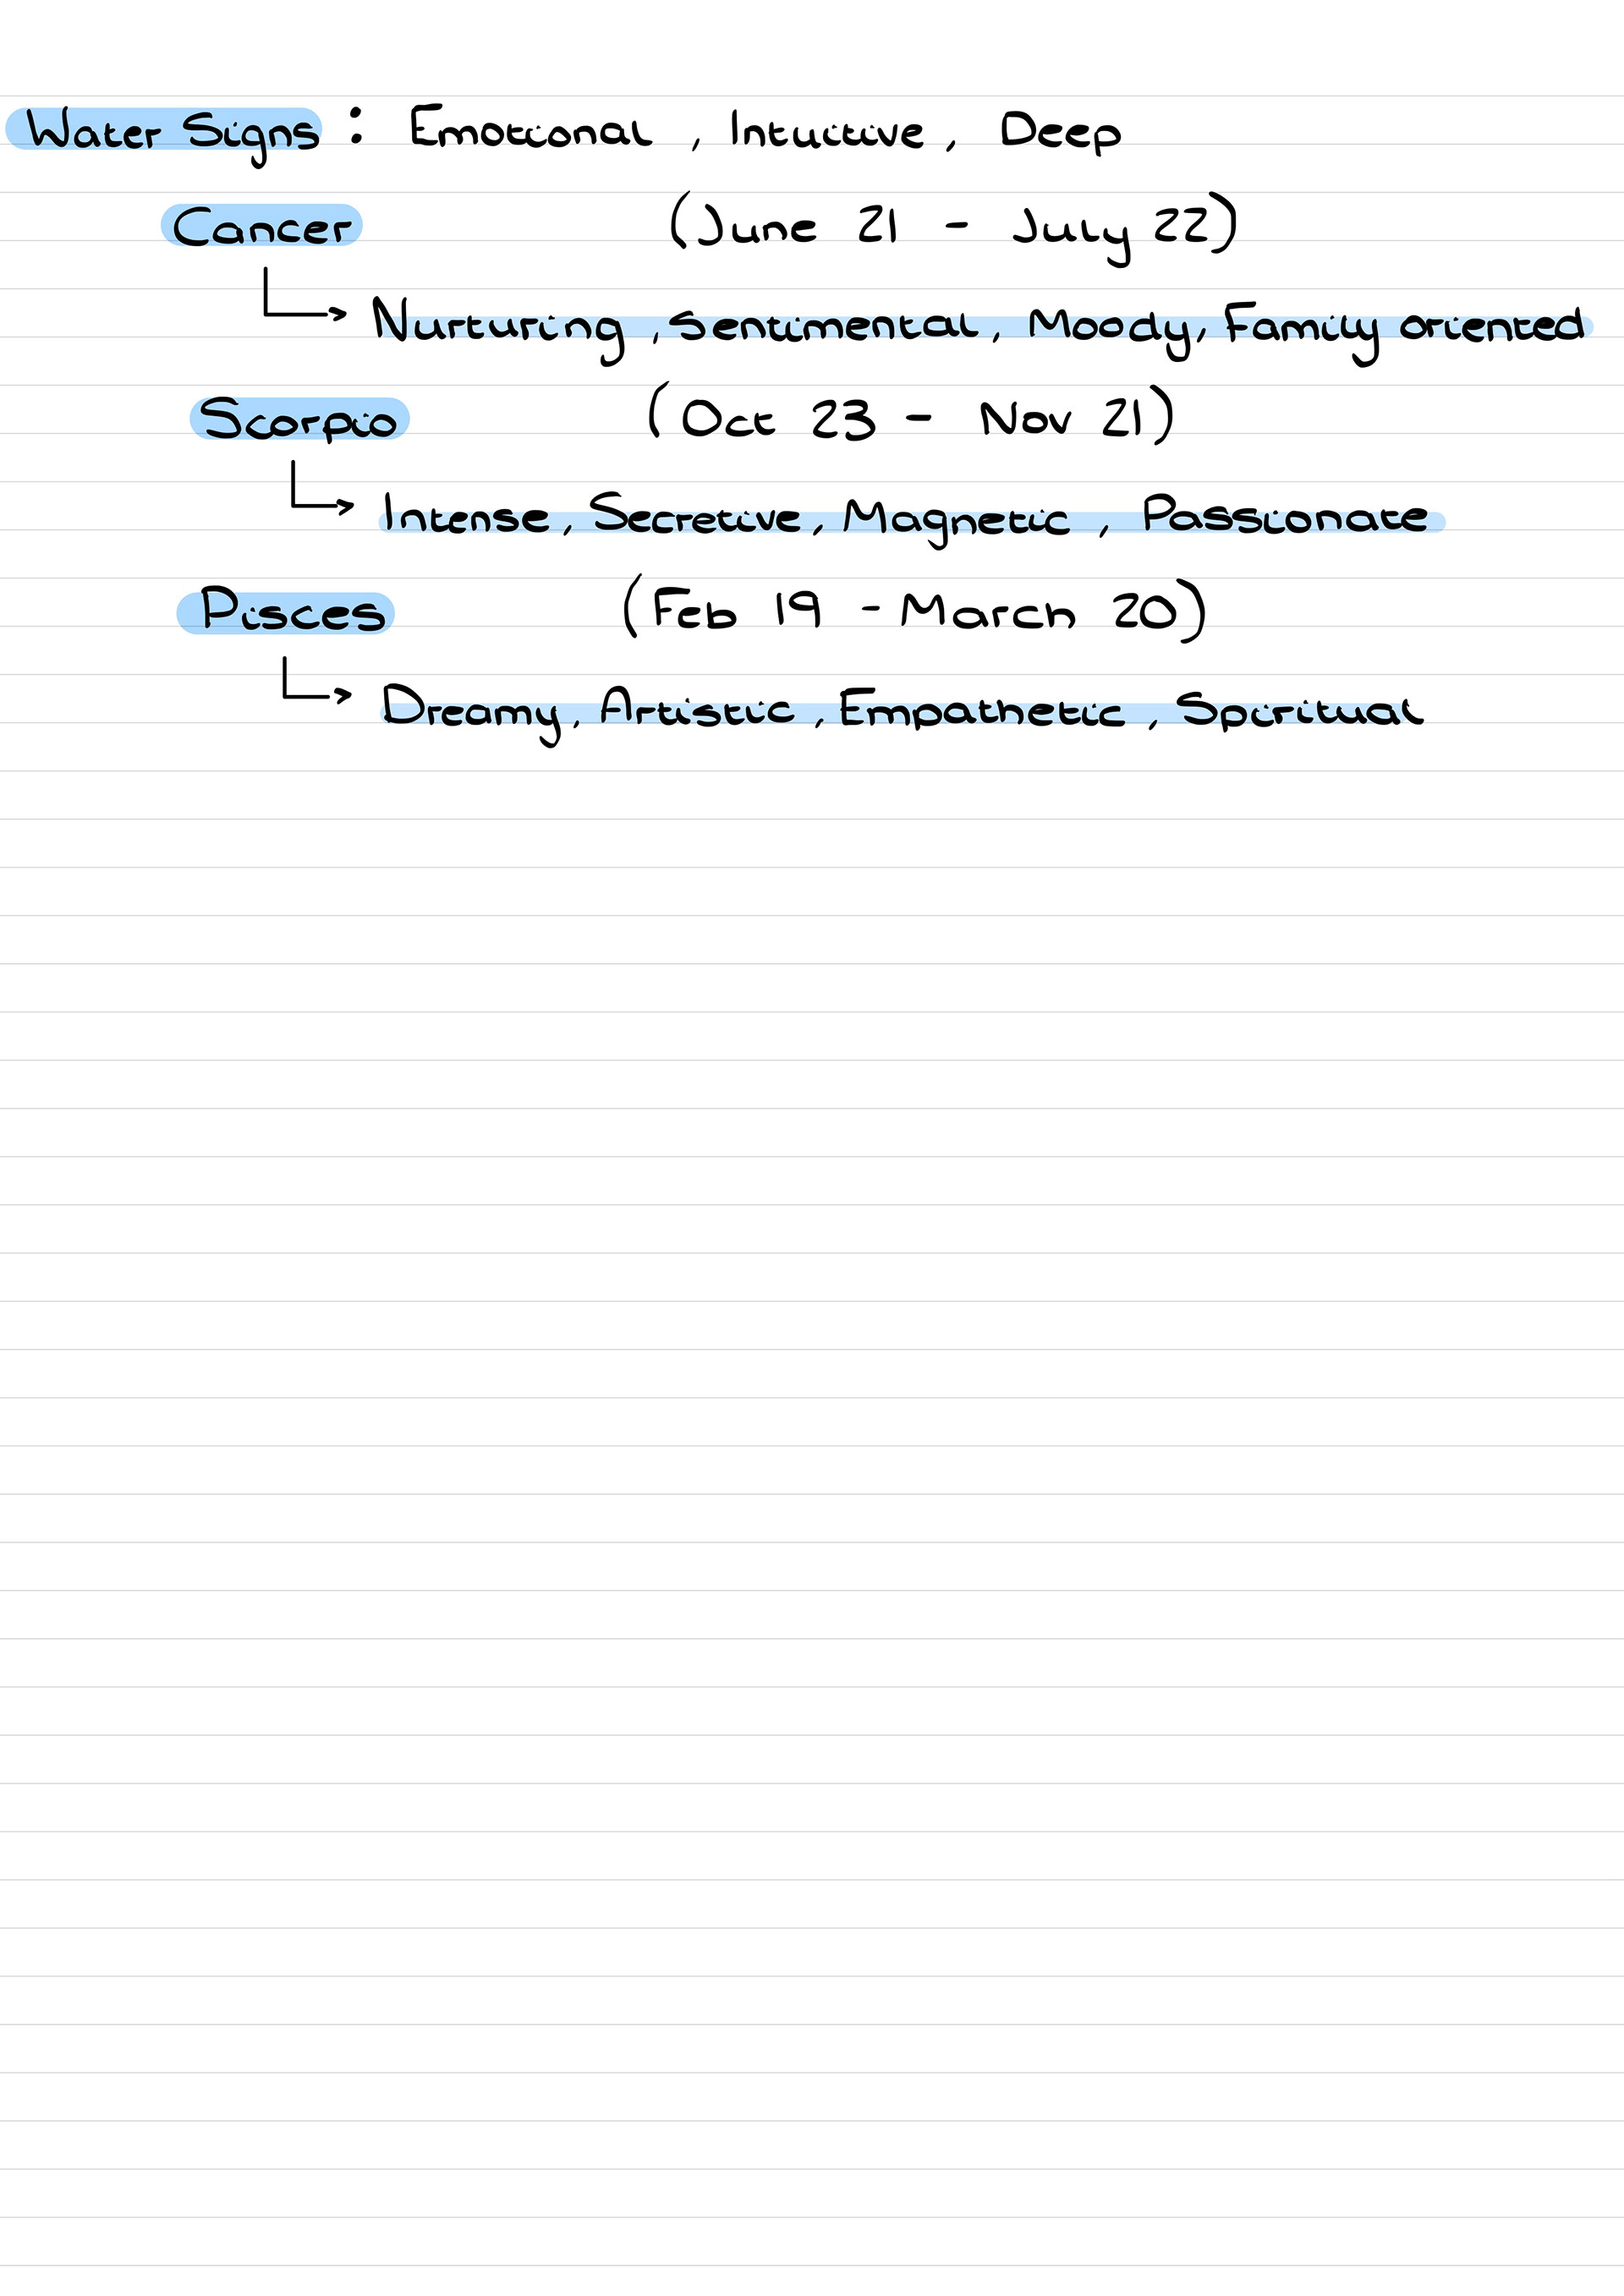 Water Signs : Emotional , Intuitive , Deep
Cancer (June 21 - July 22)
Nurturing , Sentimental , Moody, Family oriented
Scorpio (Oct 23 - Nov 21)
Intense , Secretive, Magnetic , Passionate
Pisces (Feb 19 - March 20)
Dreamy, Artistic , Empathetic , Spiritual